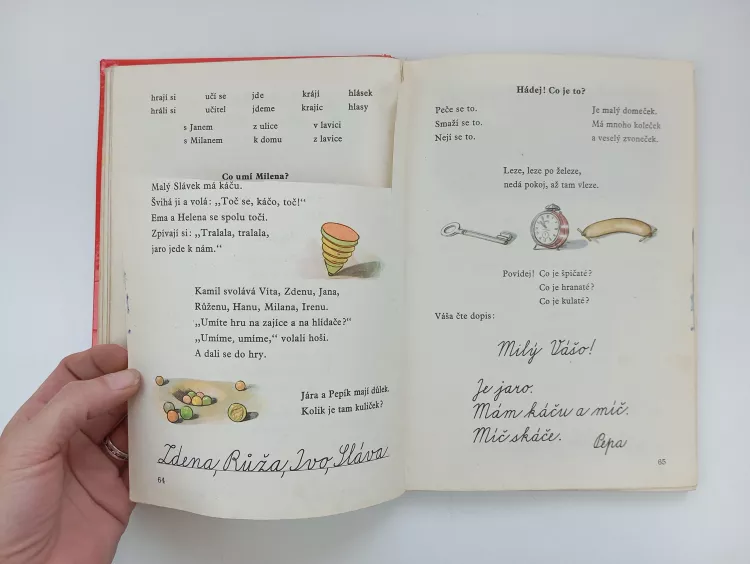 hrají si učí se jde krájí hlásek
hráli si učitel jdeme krajíc hlasy
s Janem z ulice v lavici
s Milanem k domu z lavice
Co umí Milena?
Malý Slávek má káču.
Švihá ji a volá: „Toč se, káčo, toč!“
Ema a Helena se spolu točí.
Zpívají si: „Tralala, tralala,
jaro jede k nám.“
Kamil svolává Víta, Zdenu, Jana,
Růženu, Hanu, Milana, Irenu.
„Umíte hru na zajíce a na hlídače?“
„Umíme, umíme,“ volali hoši.
A dali se do hry.
Jára a Pepík mají důlek.
Kolik je tam kuliček?
Zdena, Růža, Ivo, Sláva
64
Hádej! Co je to?
Peče se to.
Smaží se to.
Nejí se to.
Je malý domeček.
Má mnoho koleček
a veselý zvoneček.
Leze, leze po železe,
nedá pokoj, až tam vleze.
Povídej! Co je špičaté?
Co je hranaté?
Co je kulaté?
Váša čte dopis:
Milý Vášo!
Je jaro.
Mám káču a míč.
Míč skáče.
Pepa
65